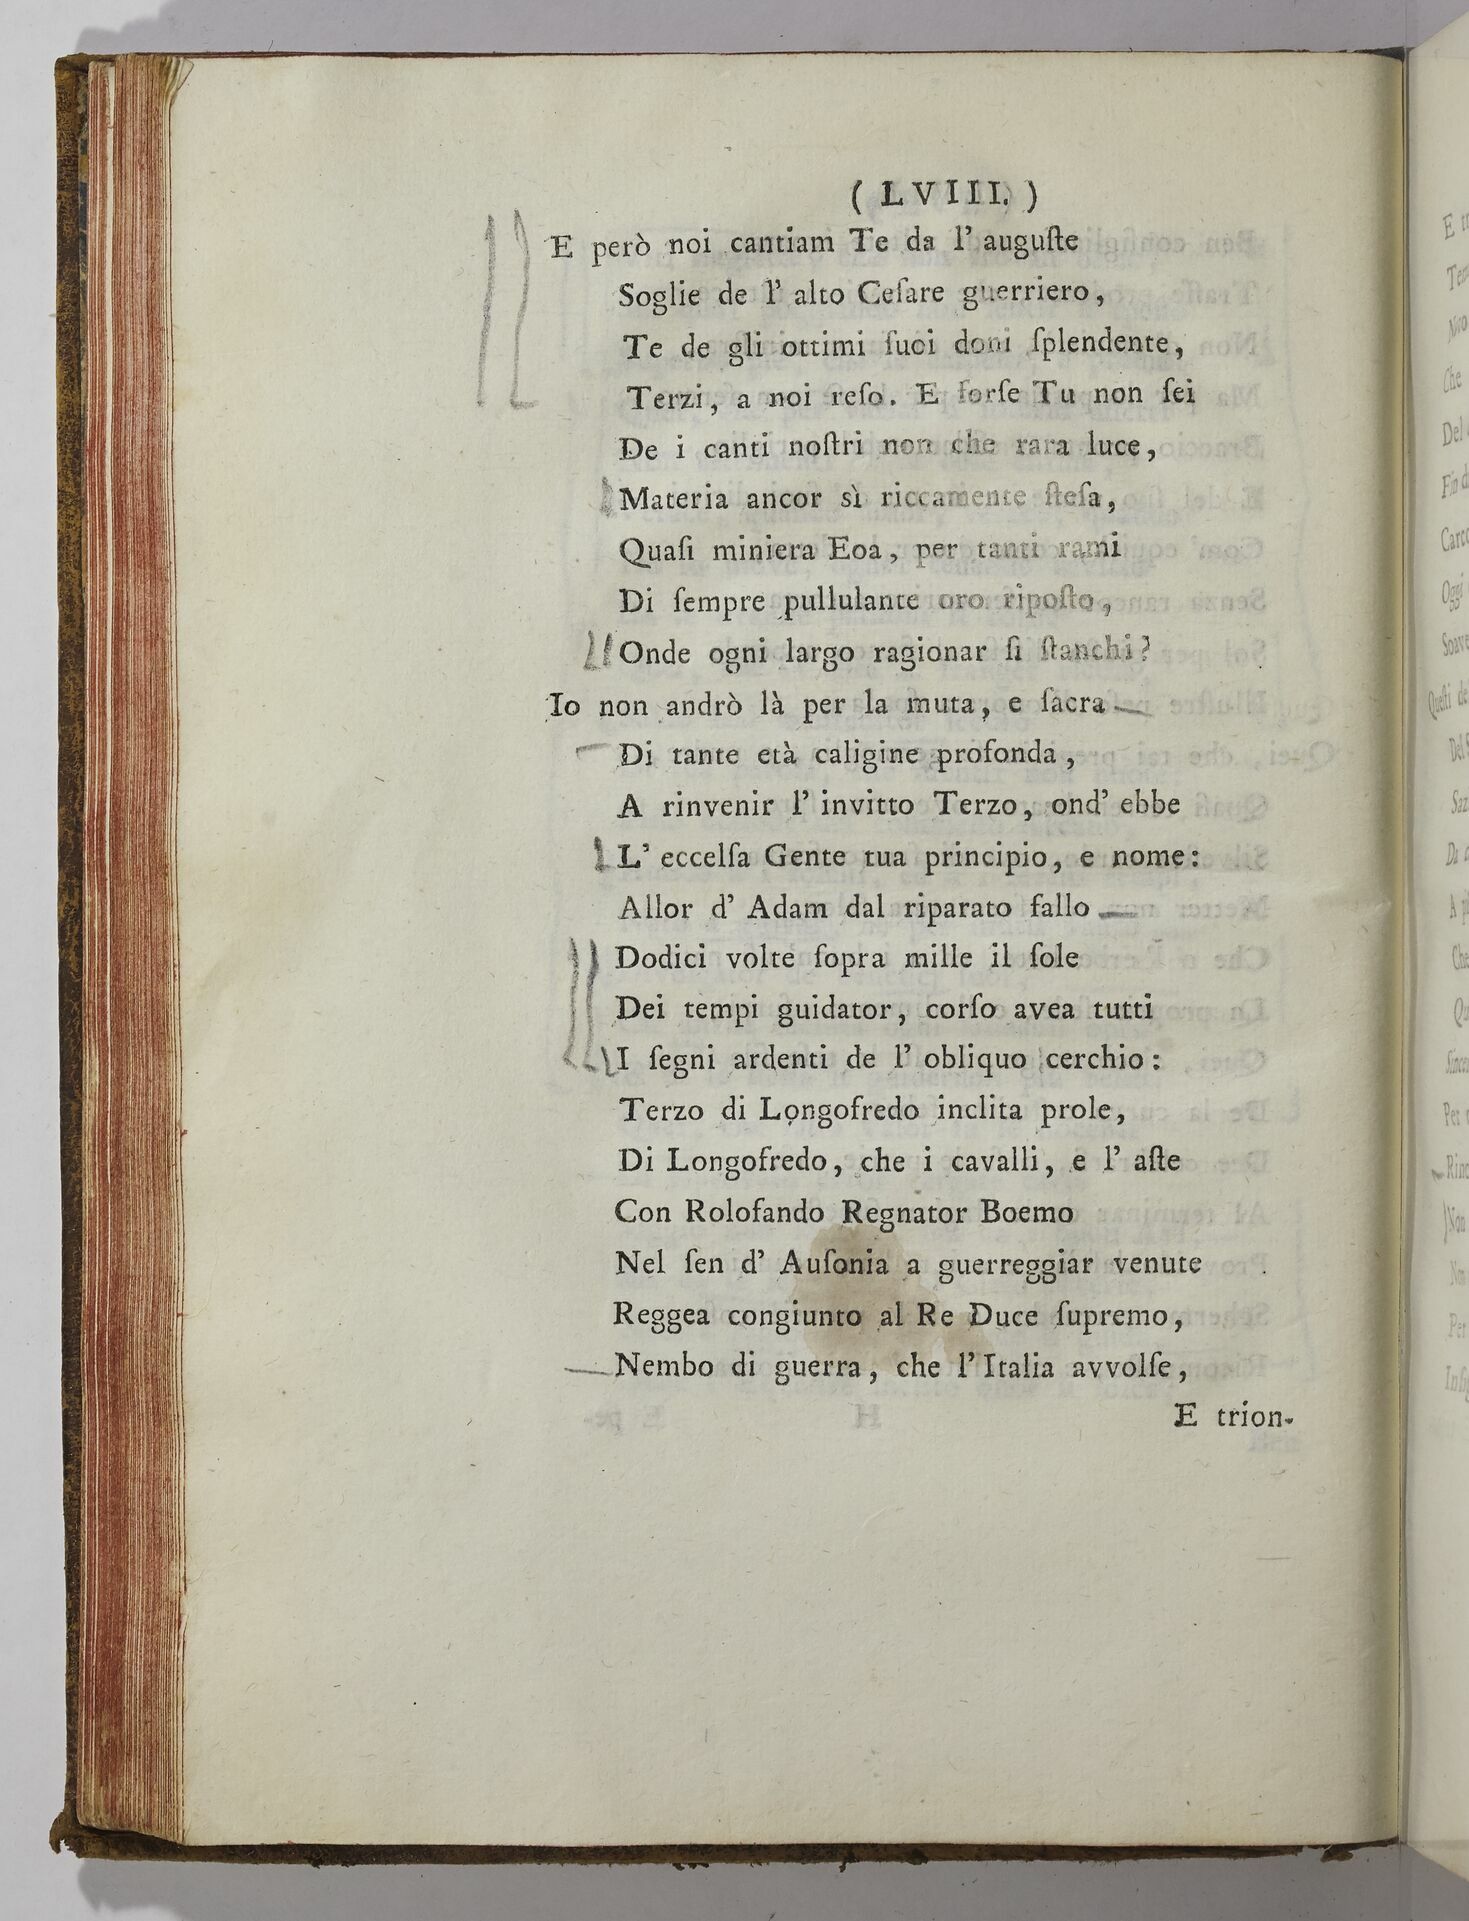 ( LVIII. )
E però noi cantiam Te da l' auguſte
Soglie de l' alto Ceſare guerriero,
Te de gli ottimi ſuoi doni ſplendente,
Terzi, a noi reſo. E forſe Tu non ſei
De i canti noſtri non che rara luce,
Materia ancor sì riccamente ſteſa,
Quaſi miniera Eoa, per tanti rami
Di ſempre pullulante oro ripoſto,
Onde ogni largo ragionar ſi ſtanchi?
Io non andrò là per la muta, e ſacra
Di tante età caligine profonda,
A rinvenir l' invitto Terzo, ond' ebbe
L' eccelſa Gente tua principio, e nome:
Allor d' Adam dal riparato fallo
Dodici volte ſopra mille il ſole
Dei tempi guidator, corſo avea tutti
I ſegni ardenti de l' obliquo cerchio:
Terzo di Longofredo inclita prole,
Di Longofredo, che i cavalli, e l' aſte
Con Rolofando Regnator Boemo
Nel ſen d' Auſonia a guerreggiar venute
Reggea congiunto al Re Duce ſupremo,
Nembo di guerra, che l' Italia avvolſe,
E trion-